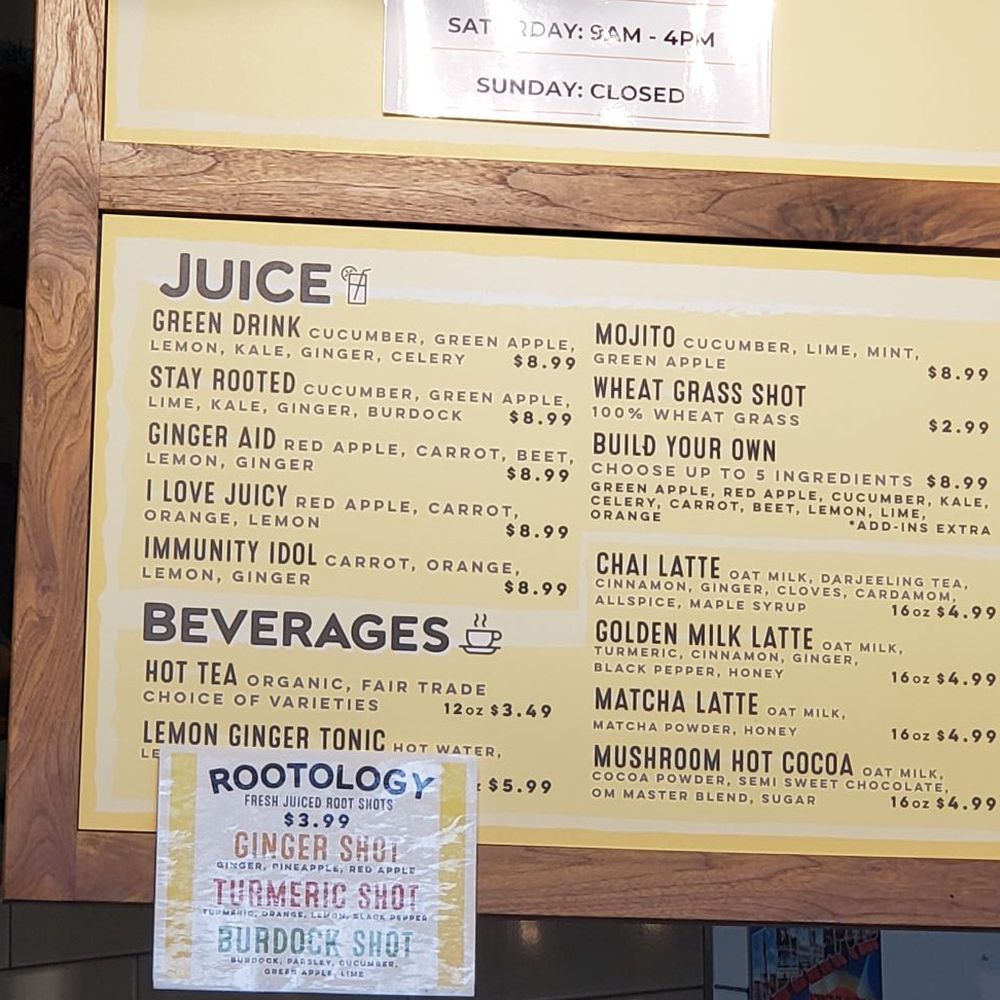 SATURDAY: 9AM - 4PM
SUNDAY: CLOSED
JUICE
GREEN DRINK CUCUMBER, GREEN APPLE,
LEMON, KALE, GINGER, CELERY $8.99
STAY ROOTED CUCUMBER, GREEN APPLE,
LIME, KALE, GINGER, BURDOCK $8.99
GINGER AID RED APPLE, CARROT, BEET,
LEMON, GINGER $8.99
I LOVE JUICY RED APPLE, CARROT,
ORANGE, LEMON $8.99
IMMUNITY IDOL CARROT, ORANGE,
LEMON, GINGER $8.99
MOJITO CUCUMBER, LIME, MINT,
GREEN APPLE $8.99
WHEAT GRASS SHOT
100% WHEAT GRASS $2.99
BUILD YOUR OWN
CHOOSE UP TO 5 INGREDIENTS $8.99
GREEN APPLE, RED APPLE, CUCUMBER, KALE,
CELERY, CARROT, BEET, LEMON, LIME,
ORANGE *ADD-INS EXTRA
BEVERAGES
HOT TEA ORGANIC, FAIR TRADE
CHOICE OF VARIETIES 12oz $3.49
LEMON GINGER TONIC HOT WATER,
$5.99
CHAI LATTE OAT MILK, DARJEELING TEA,
CINNAMON, GINGER, CLOVES, CARDAMOM,
ALLSPICE, MAPLE SYRUP 16oz $4.99
GOLDEN MILK LATTE OAT MILK,
TURMERIC, CINNAMON, GINGER,
BLACK PEPPER, HONEY 16oz $4.99
MATCHA LATTE OAT MILK,
MATCHA POWDER, HONEY 16oz $4.99
MUSHROOM HOT COCOA OAT MILK,
COCOA POWDER, SEMI SWEET CHOCOLATE,
OM MASTER BLEND, SUGAR 16oz $4.99
ROOTOLOGY
FRESH JUICED ROOT SHOTS
$3.99
GINGER SHOT
GINGER, PINEAPPLE, RED APPLE
TURMERIC SHOT
TURMERIC, ORANGE, LEMON, BLACK PEPPER
BURDOCK SHOT
BURDOCK, PARSLEY, CUCUMBER,
GREEN APPLE, LIME